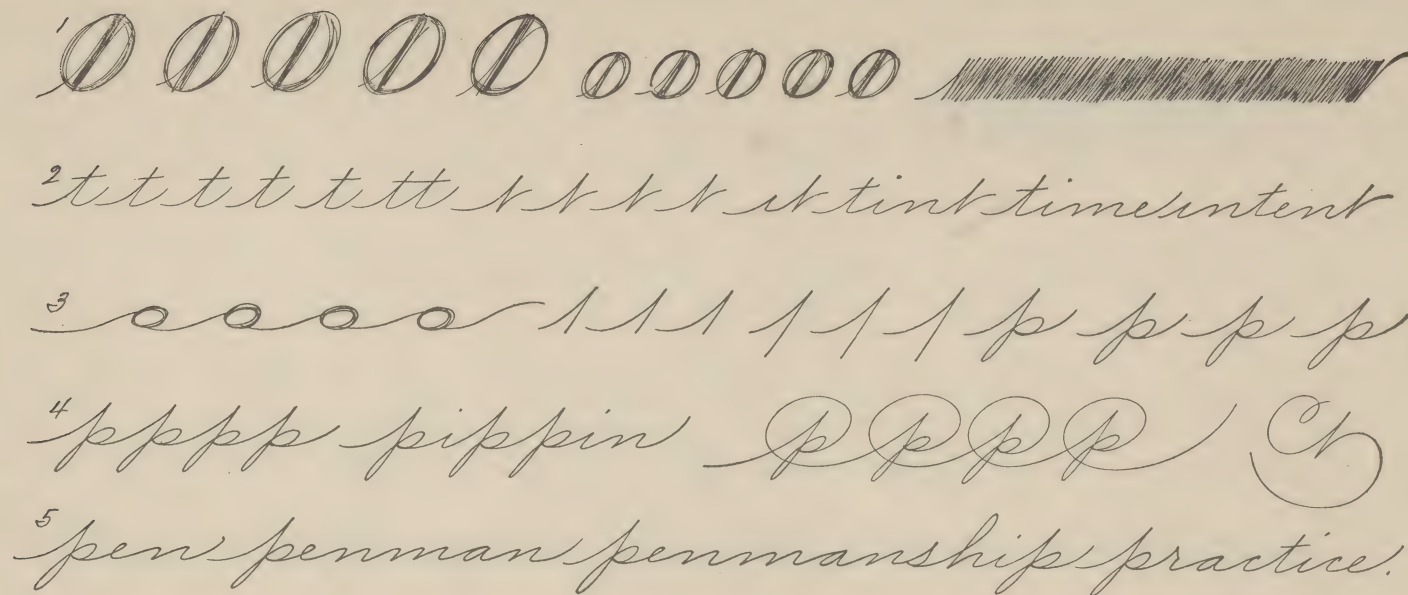 1
2 t t t t t tt t t t t it tint time intent
3 p p p p
4 pppp pippin p p p p
5 pen penman penmanship practice.